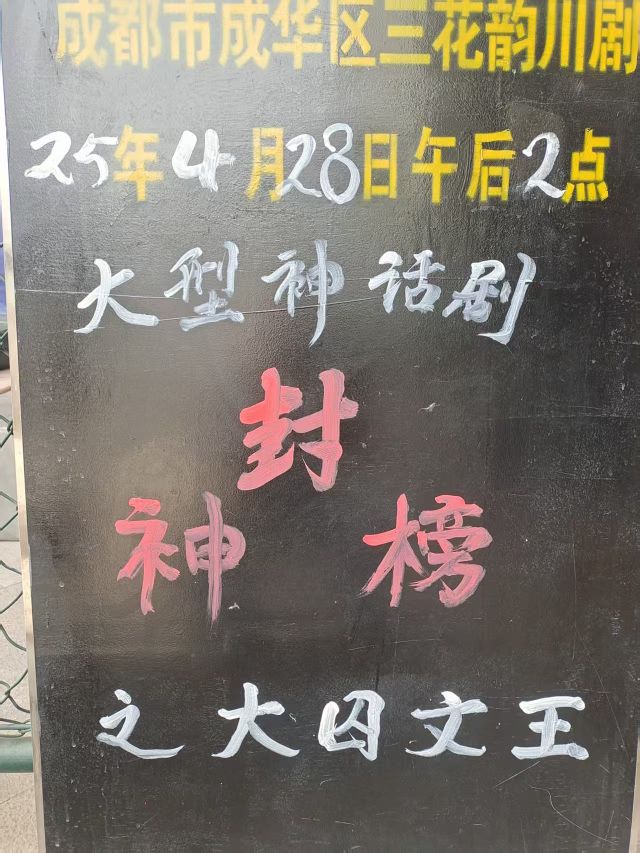 成都市成华区三花韵川剧
25年4月28日午后2点
大型神话剧
封
神榜
之大囚文王